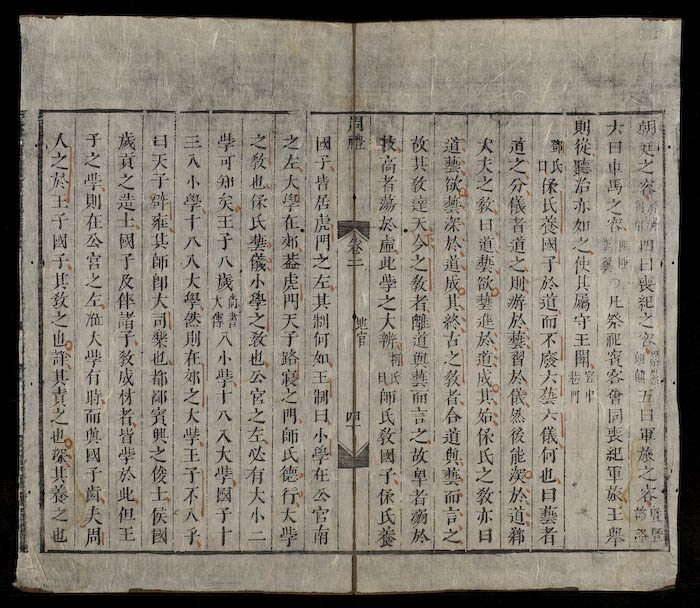 朝廷之容四曰喪紀之容五曰軍旅之容暨暨詻詻
六曰車馬之容凡祭祀賓客會同喪紀軍旅王舉
則從聽治亦如之使其屬守王闈宮中巷門
鄭氏曰保氏養國子於道而不廢六藝六儀何也曰藝者
道之分儀者道之則游於藝習於儀然後能深於道鄉
大夫之教曰道藝欲藝進於道成其始保氏之教亦曰
道藝欲藝深於道成其終古之教者合道與藝而言之
故其教達天今之教者離道與藝而言之故卑者溺於
技高者蕩於虛此學之大辨氏曰師氏敎國子保氏養
周禮 卷二 地官
國子皆居虎門之左其制何如王制曰小學在公宮南
之左大學在郊葢虎門天子路寢之門師氏德行大學
之敎也保氏藝儀小學之敎也公宮之左必有大小二
學可知矣王子八歲尚書大傳入小學十八入大學國子十
三入小學十八入大學然則在郊之大學王子不入乎
曰天子辟雍其師卽大司樂也都鄙賓興之俊士侯國
歲貢之造士國子及倅諸子敎成材者皆學於此但王
子之學則在公宮之左進大學有時而與國子齒夫周
人之於王子國子其敎之也詳其責之也深其養之也